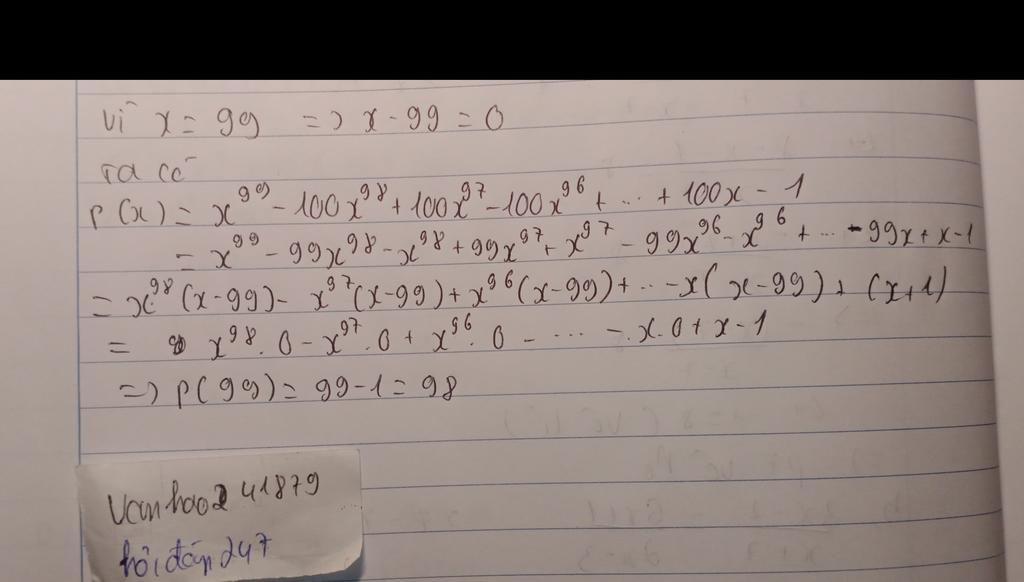 vì x = 99 => x - 99 = 0
Ta có
P(x) = x^99 - 100x^98 + 100x^97 - 100x^96 + ... + 100x - 1
= x^99 - 99x^98 - x^98 + 99x^97 + x^97 - 99x^96 - x^96 + ... - 99x + x - 1
= x^98 (x-99) - x^97 (x-99) + x^96 (x-99) + ... - x(x-99) + (x+1)
= x^98 . 0 - x^97 . 0 + x^96 . 0 - .... - x.0 + x - 1
=> P(99) = 99 - 1 = 98
Vanhao2 41879
hỏi đáp 247